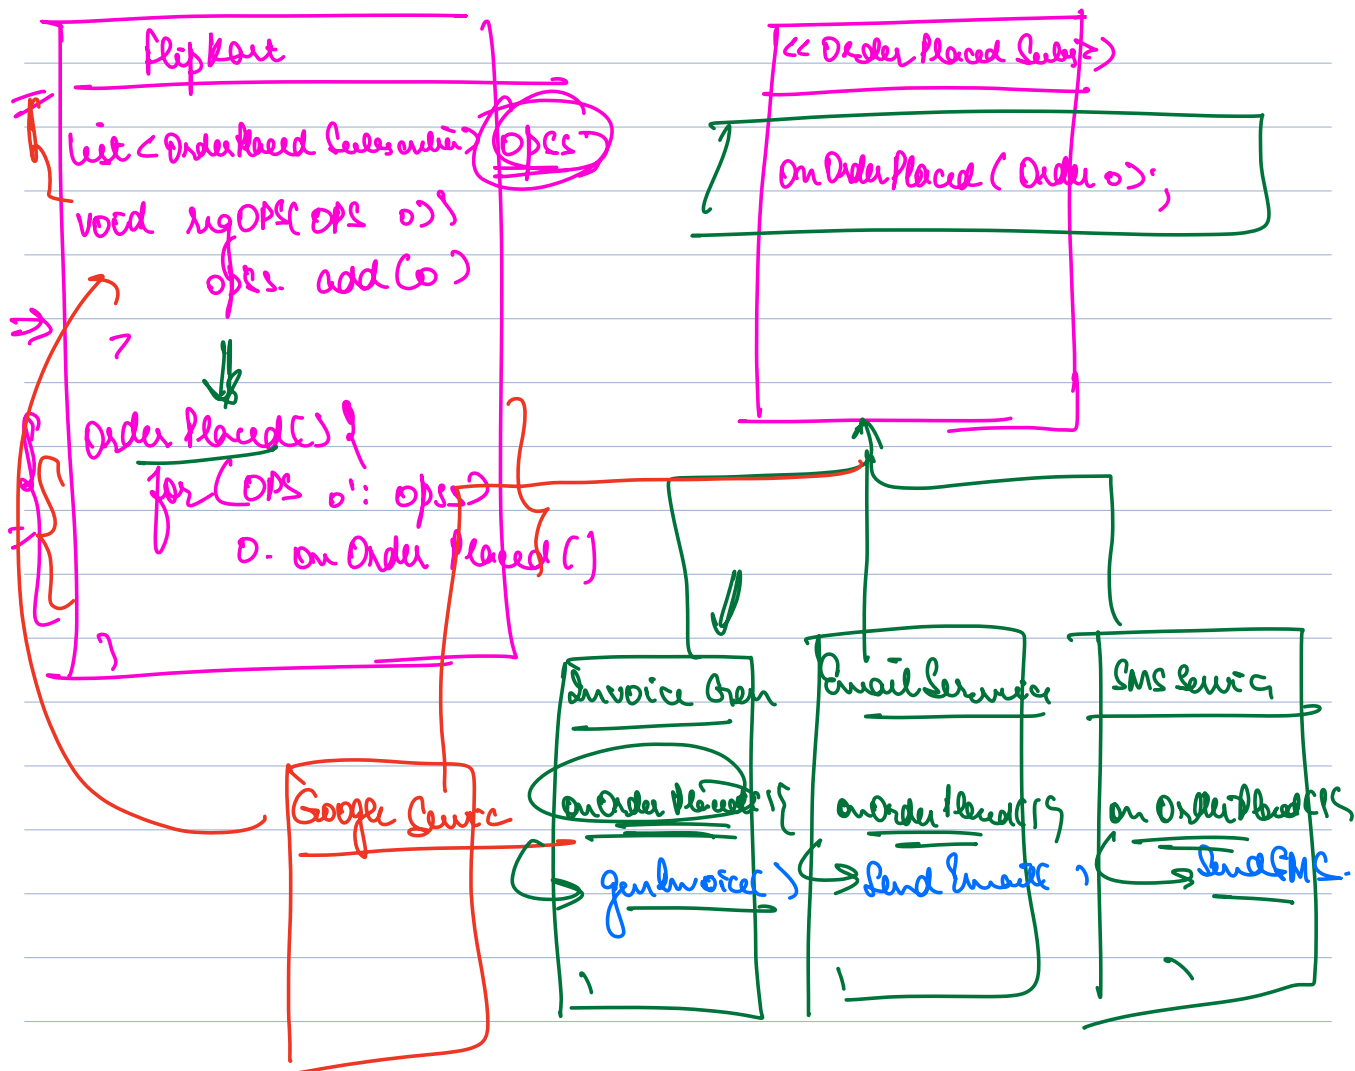 Flipkart
List <OrderPlaced Subscriber> opss
void regOPS(OPS o){
opss. add(o)
}
OrderPlaced(){
for (OPS o : opss)
o. onOrder Placed()
}
<< Order Placed Subs>>
onOrderPlaced( Order o);
Invoice Gen
onOrder Placed(){
genInvoice()
}
Email Service
onOrder Placed(){
Send Email( )
}
SMS Service
on OrderPlaced(){
Send SMS
}
Google Service